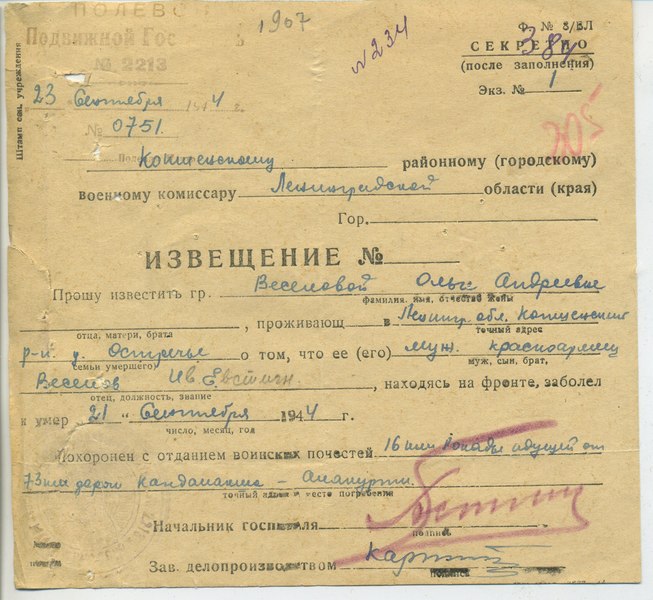 1907
ПОЛЕВО
Подвижной Гос
№ 2213
Штамп сан. учреждения
№ 234
384
Ф. № 8/ВЛ
СЕКРЕТНО
(после заполнения)
Экз. № 1
23 Сентября 1944 г.
№ 0751.
205
районному (городскому)
военному комиссару Ленинградской области (края)
Гор.
ИЗВЕЩЕНИЕ №
Прошу известить гр. Веселовой Ольге Андреевне
фамилия, имя, отчество жены
, проживающ в Ленингр. обл.
отца, матери, брата точный адрес
р-н д. Остречье о том, что ее (его) муж. красноармеец
семьи умершего) муж, сын, брат,
Веселов Ив. Евстигн. , находясь на фронте, заболел
отец, должность, звание
и умер "21" Сентября 1944 г.
число, месяц, год
Похоронен с отданием воинских почестей 16 км
73 км дороги Кандалакша – Алакуртти.
точный адрес и место погребения
Начальник госпиталя
подпись
Зав. делопроизводством
подпись